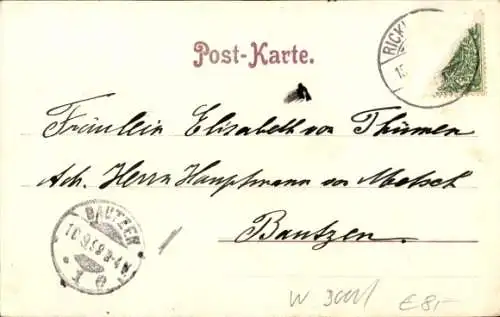 Post-Karte.
RICK
15
Fräulein Elisabeth von Thümen
Adr. Herrn Hauptmann von Metsch
Bautzen.
BAUTZEN
W 3001
€ 8,-